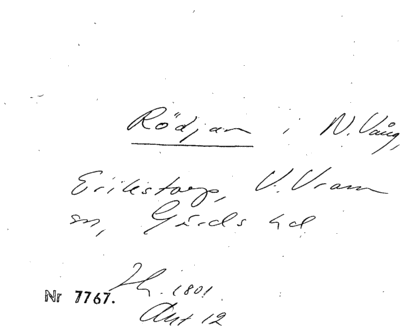 Rödjan i N. Vång,
Erikstorp, V. Vram
sn, Gärds hd
Nr 7767. 1801.
Akt 12